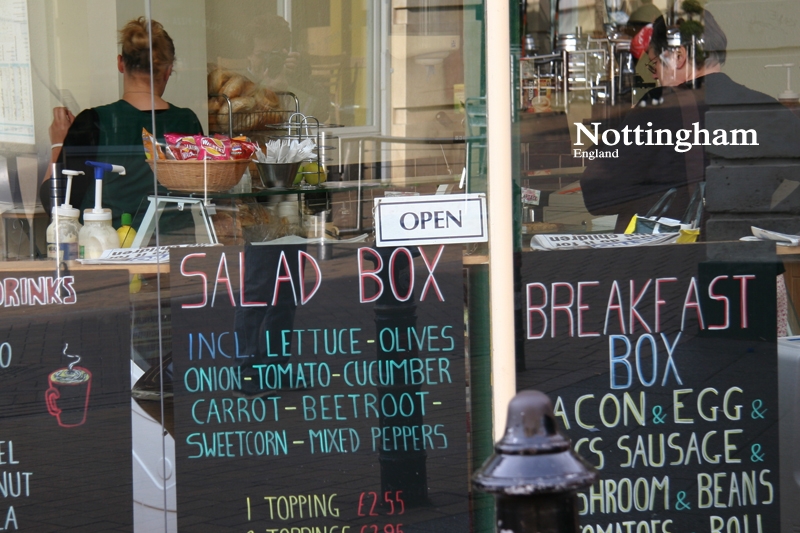 Nottingham
England
OPEN
DRINKS
SALAD BOX
INCL. LETTUCE-OLIVES
ONION-TOMATO-CUCUMBER
CARROT-BEETROOT-
SWEETCORN-MIXED PEPPERS
1 TOPPING £2.55
2 TOPPINGS £2.95
BREAKFAST
BOX
ACON & EGG &
CS SAUSAGE &
SHROOM & BEANS
TOMATOES ROLL
O
EL
NUT
LA